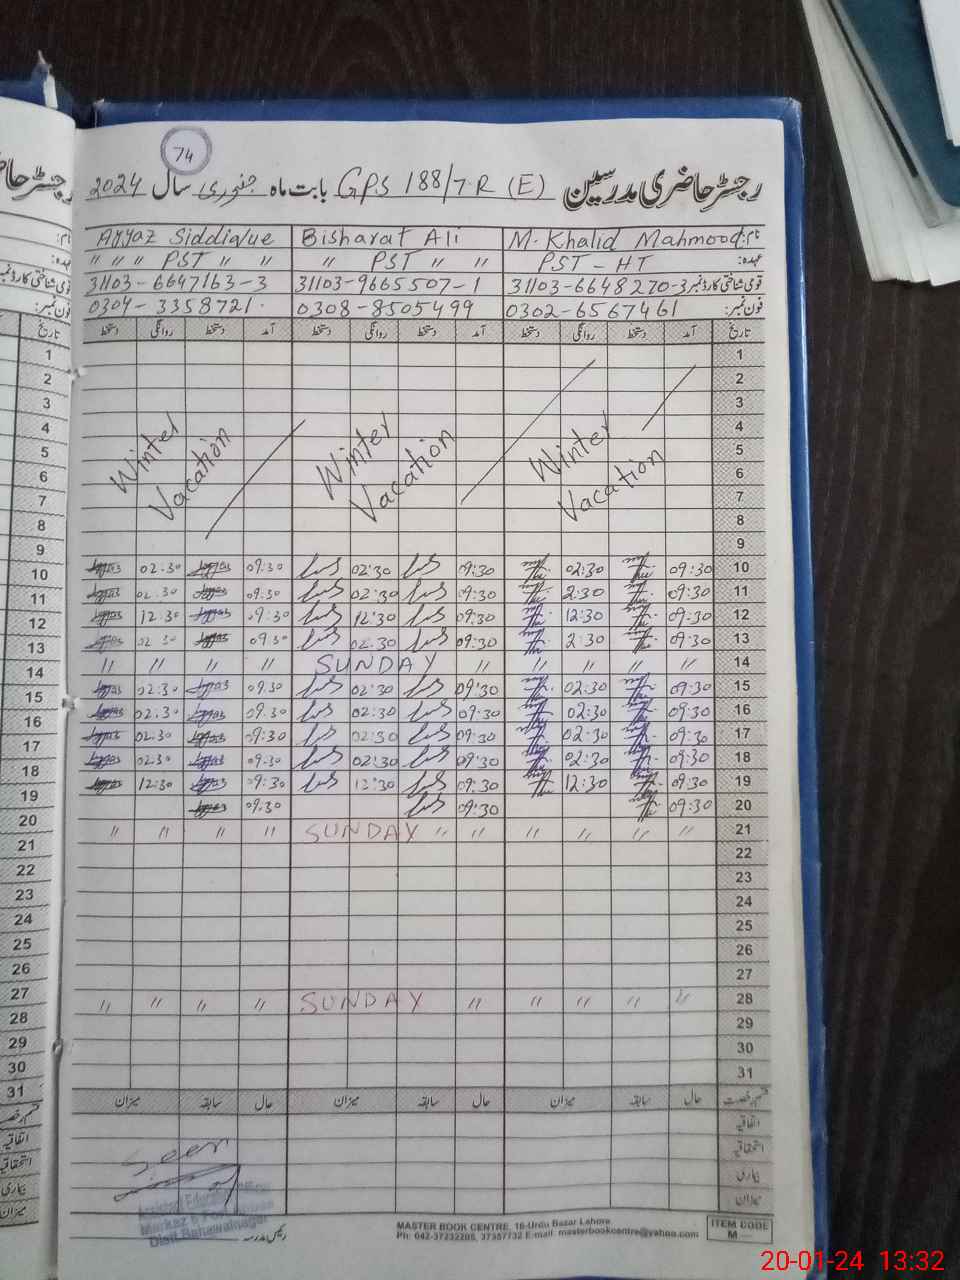 74
رجسٹر حاضری مدرسین GPS 188/7.R (E) بابت ماہ جنوری سال 2024
نام: M. Khalid Mahmood Bisharat Ali Ayyaz Siddiqlue
عہدہ: PST - HT " PST " " " " " PST " "
قومی شناختی کارڈ نمبر: 31103-6648270-3 31103-9665507-1 31103-6647163-3
فون نمبر: 0302-6567461 0308-8505499 0304-3358721
تاریخ آمد دستخط روانگی دستخط آمد دستخط روانگی دستخط آمد دستخط روانگی دستخط
1
2
3
4
5
6
7
8
9
Winter Vacation Winter Vacation Winter Vacation
10 09:30 02:30 09:30 02:30 09:30 02:30
11 09:30 2:30 09:30 02:30 09:30 02:30
12 09:30 12:30 09:30 12:30 09:30 12:30
13 09:30 2:30 09:30 02:30 09:30 02:30
14 " " " " " SUNDAY " " " "
15 09:30 02:30 09:30 02:30 09:30 02:30
16 09:30 02:30 09:30 02:30 09:30 02:30
17 09:30 02:30 09:30 02:30 09:30 02:30
18 09:30 02:30 09:30 02:30 09:30 02:30
19 09:30 12:30 09:30 12:30 09:30 12:30
20 09:30 09:30 09:30
21 " " " " " " SUNDAY " " " "
22
23
24
25
26
27
28 " " " " " SUNDAY " " " "
29
30
31
قسم رخصت حال سابقہ میزان حال سابقہ میزان حال سابقہ میزان
اتفاقیہ
استحقاقیہ
بیماری
میزان
Seen
Distt Bahawalnagar
رئیس مدرسہ
MASTER BOOK CENTRE, 16-Urdu Bazar Lahore
Ph: 042-37232205, 37357732 E-mail: masterbookcentre@yahoo.com
ITEM CODE
M
20-01-24 13:32